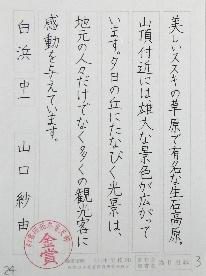 美しいススキの草原で有名な生石高原。
山頂付近には雄大な景色が広がって
います。夕日の丘にたなびく光景は、
地元の人々だけでなく多くの観光客に
感動を与えています。
白浜 中一 山口 紗由
金賞
3
24